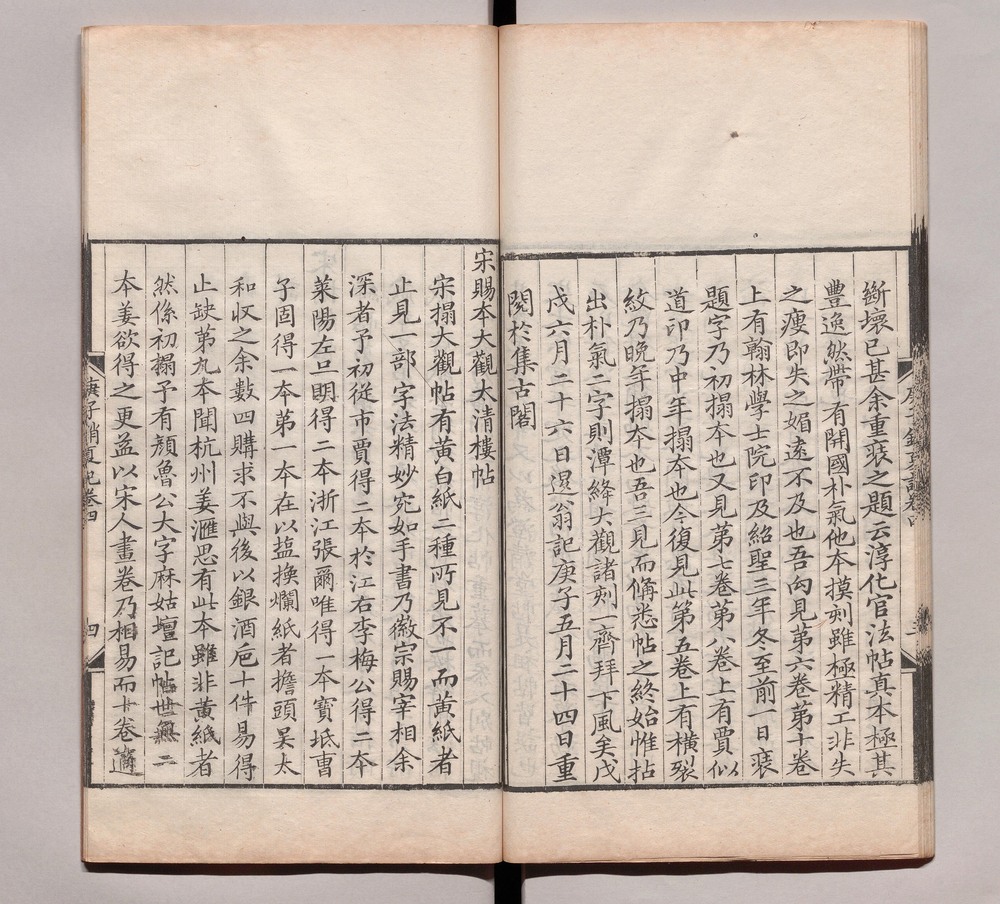 斷壞已甚余重裝之題云淳化官法帖真本極其
豐逸然帶有開國朴氣他本摸刻雖極精工非失
之瘦即失之媚遠不及也吾向見第六卷第十卷
上有翰林學士院印及紹聖三年冬至前一日裝
題字乃初搨本也又見第七卷第八卷上有賈似
道印乃中年搨本也今復見此第五卷上有橫裂
紋乃晚年搨本也吾三見而備悉帖之終始惟拈
出朴氣二字則潭絳大觀諸刻一齊拜下風矣戊
戌六月二十六日退翁記庚子五月二十四日重
閱於集古閣
宋賜本大觀太清樓帖
宋搨大觀帖有黃白紙二種所見不一而黃紙者
止見一部字法精妙宛如手書乃徽宗賜宰相余
深者予初從市賈得二本於江右李梅公得二本
萊陽左吕明得二本浙江張爾唯得一本寶坻曹
子固得一本第一本在以鹽換爛紙者擔頭吴太
和收之余數四購求不與後以銀酒卮十件易得
止缺第九本聞杭州姜滙思有此本雖非黃紙者
然係初搨予有顏魯公大字麻姑壇記帖世無二
本姜欲得之更益以宋人畫卷乃相易而十卷遒
庚子銷夏記卷四
四